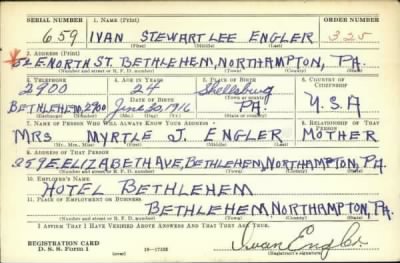 SERIAL NUMBER 1. NAME (Print) ORDER NUMBER
659 IVAN STEWART LEE ENGLER 325
(First) (Middle) (Last)
2. ADDRESS (Print)
E NORTH ST. BETHLEHEM, NORTHAMPTON, PA.
(Number and street or R. F. D. number) (Town) (County) (State)
3. TELEPHONE 4. AGE IN YEARS 5. PLACE OF BIRTH 6. COUNTRY OF CITIZENSHIP
2900 24 Shellsburg
DATE OF BIRTH (Town or county) U.S.A
BETHLEHEM, 2900 June 20, 1916 PA.
(Exchange) (Number) (Mo.) (Day) (Yr.) (State or country)
7. NAME OF PERSON WHO WILL ALWAYS KNOW YOUR ADDRESS 8. RELATIONSHIP OF THAT PERSON
MRS MYRTLE J. ENGLER MOTHER
(Mr., Mrs., Miss) (First) (Middle) (Last)
9. ADDRESS OF THAT PERSON
259 E ELIZABETH AVE, BETHLEHEM, NORTHAMPTON, PA.
(Number and street or R. F. D. number) (Town) (County) (State)
10. EMPLOYER'S NAME
HOTEL BETHLEHEM
11. PLACE OF EMPLOYMENT OR BUSINESS
BETHLEHEM, NORTHAMPTON, PA.
(Number and street or R. F. D. number) (Town) (County) (State)
I AFFIRM THAT I HAVE VERIFIED ABOVE ANSWERS AND THAT THEY ARE TRUE.
REGISTRATION CARD
D. S. S. Form 1 16-17105 Ivan Engler
(Registrant's signature)